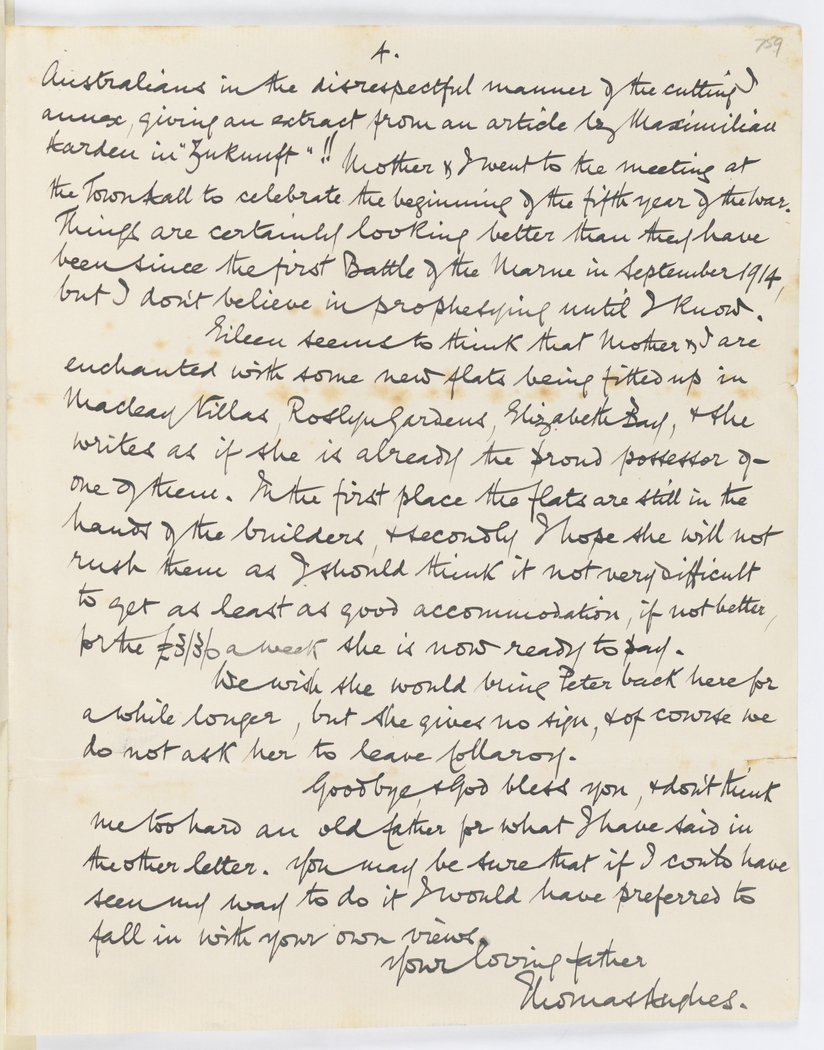 4.
759
Australians in the disrespectful manner of the cutting I
annex, giving an extract from an article by Maximilian
Harden in "Zukunft"!! Mother & I went to the meeting at
the Town Hall to celebrate the beginning of the fifth year of the war.
Things are certainly looking better than they have
been since the first Battle of the Marne in September 1914,
but I don't believe in prophesying until I know.
Eileen seems to think that Mother & I are
enchanted with some new flats being fitted up in
Macleay Villas, Roslyn Gardens, Elizabeth Bay, & she
writes as if she is already the proud possessor of
one of them. In the first place the flats are still in the
hands of the builders, & secondly I hope she will not
rush them as I should think it not very difficult
to get as least as good accommodation, if not better,
for the £3/3/0 a week she is now ready to pay.
We wish she would bring Peter back here for
a while longer, but she gives no sign, & of course we
do not ask her to leave Collaroy.
Goodbye, & God bless you, & don't think
me too hard an old father for what I have said in
the other letter. You may be sure that if I could have
seen my way to do it I would have preferred to
fall in with your own views.
Your loving father
Thomas Hughes.